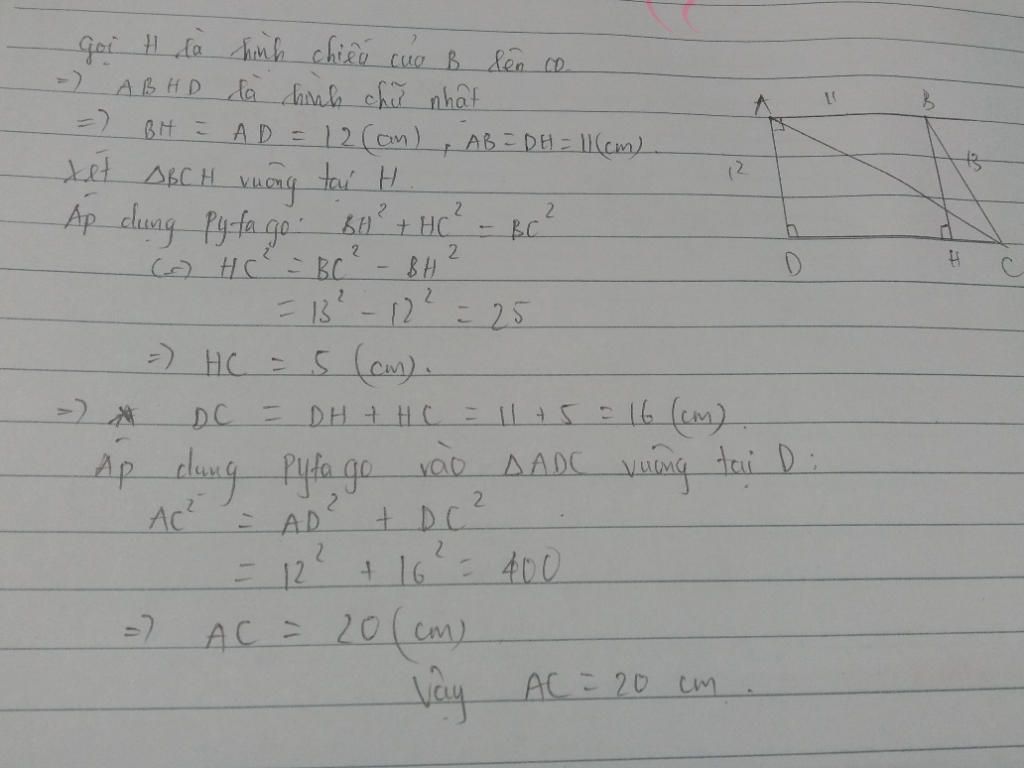 Gọi H là hình chiếu của B lên CD.
=> ABHD là hình chữ nhật
=> BH = AD = 12 (cm), AB = DH = 11(cm).
Xét ΔBCH vuông tại H.
Áp dụng Py-ta go: BH² + HC² = BC²
(=) HC² = BC² - BH²
= 13² - 12² = 25
=> HC = 5 (cm).
=> DC = DH + HC = 11 + 5 = 16 (cm).
Áp dung Pytago vào ΔADC vuông tại D:
AC² = AD² + DC²
= 12² + 16² = 400
=> AC = 20 (cm)
Vậy AC = 20 cm.
A 11 B
12 13
D H C